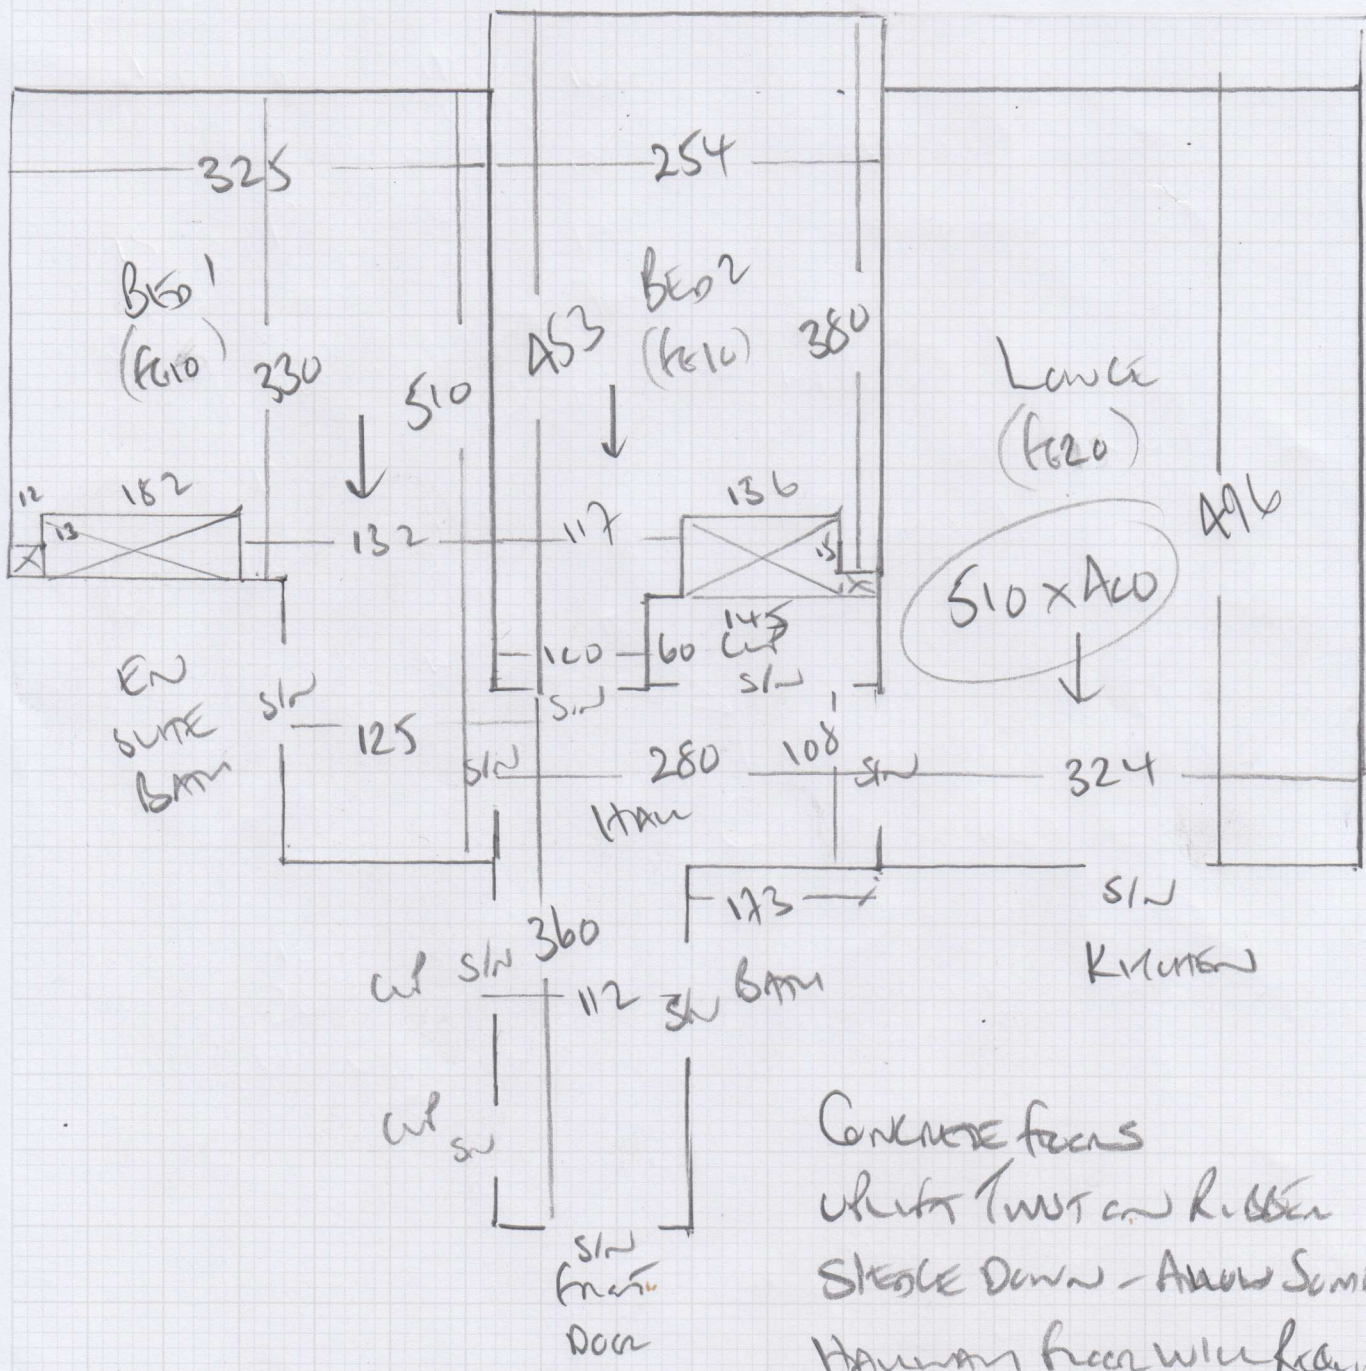 325
254
BED 1
(FE10)
330
510
453
BED 2
(FE10)
380
LOUNGE
(FE20)
496
510 x 400
12
182
13
132
117
136
15
145
CUP
100
60
S/N
S/N
EN
SUITE
BATH
S/N
125
S/N
280
108
S/N
324
HALL
173
S/N
KITCHEN
360
CUP S/N
112
S/N
BATH
CUP
S/N
S/N
FRONT
DOOR
CONCRETE FLOORS
UPLIFT TWIST ON RUBBER
DOWN - ALLOW
HALLWAY FLOOR WILL